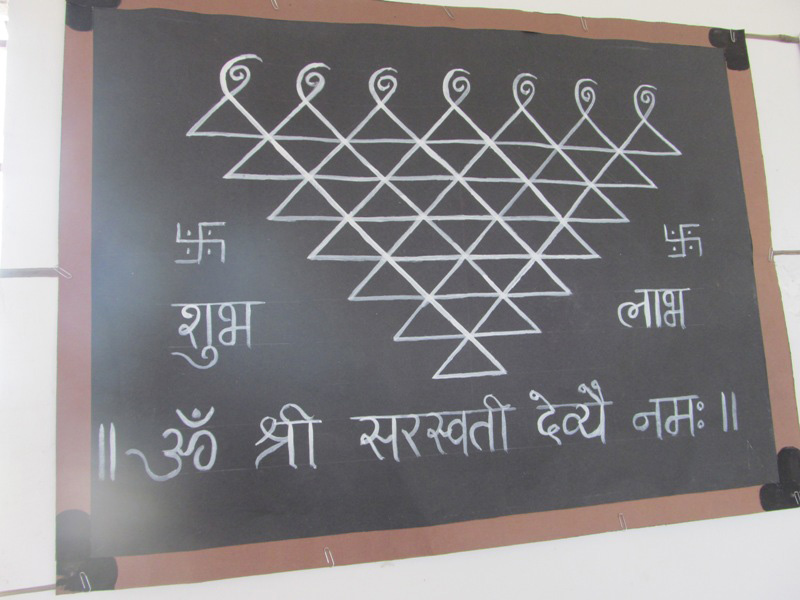 शुभ लाभ
॥ ॐ श्री सरस्वती देव्यै नमः ॥